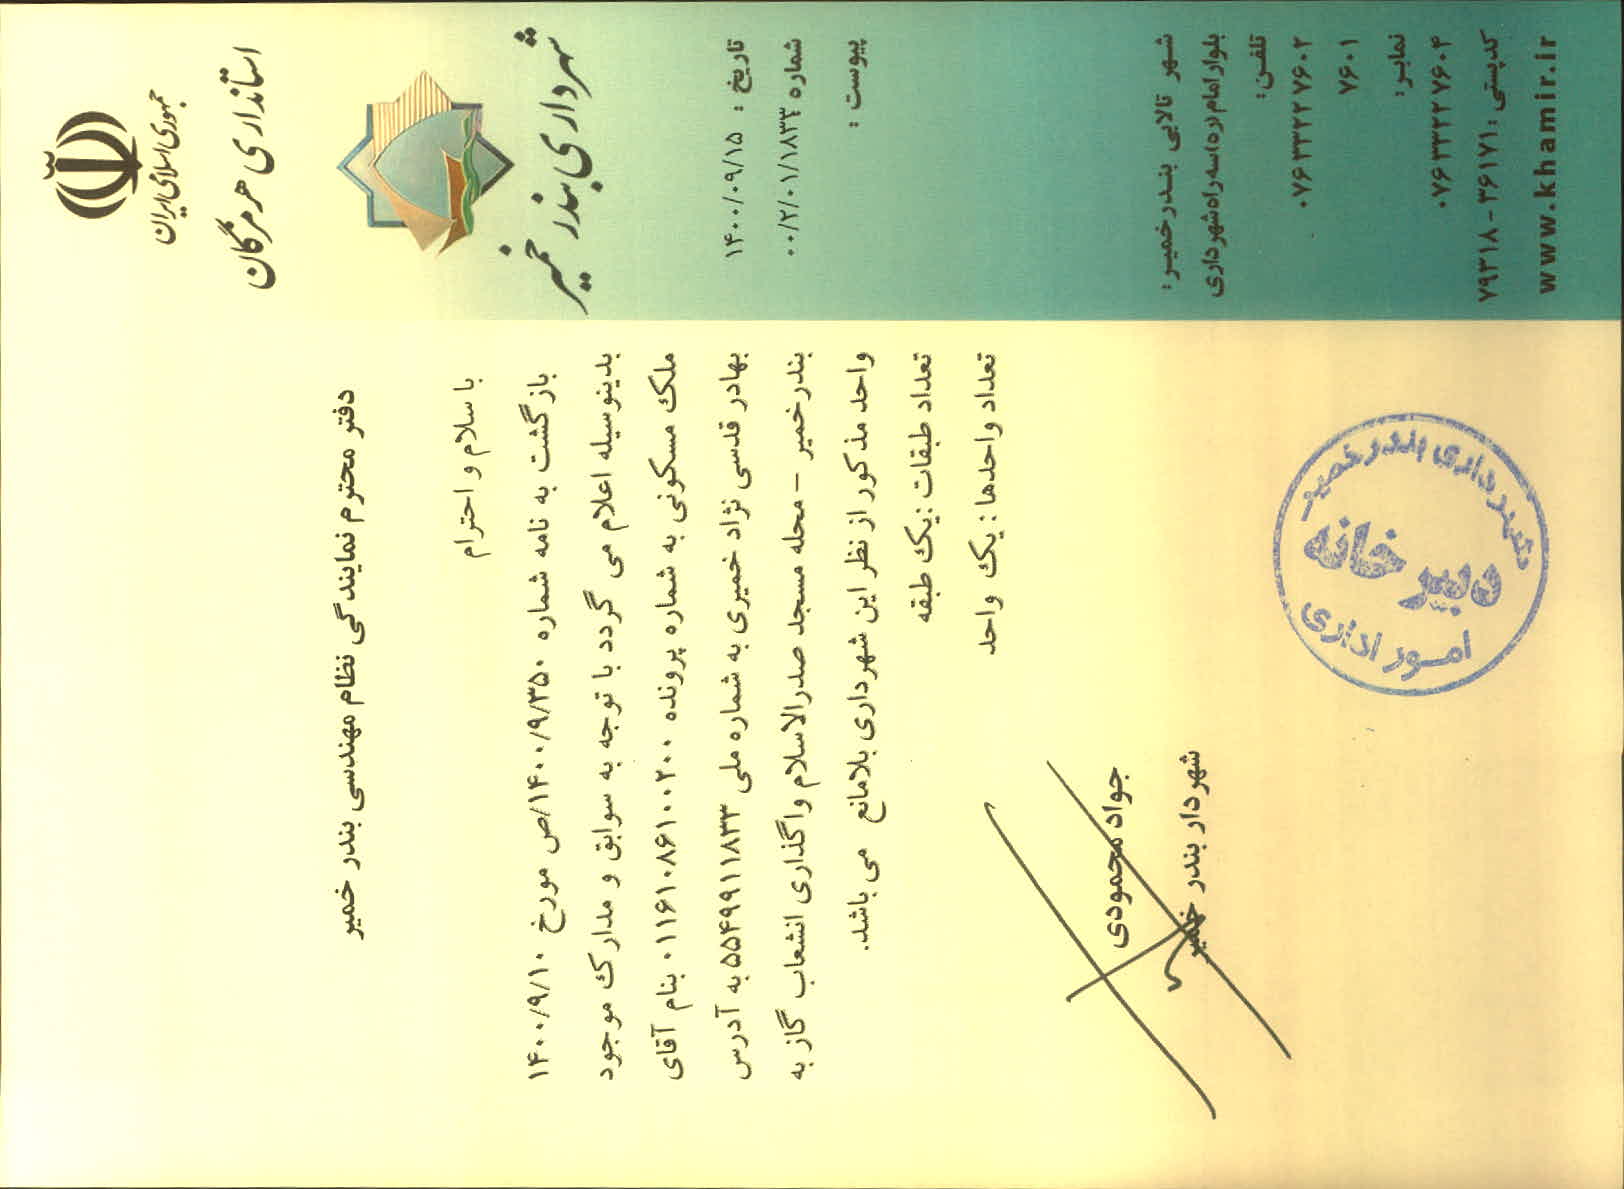 جمهوری اسلامی ایران
استانداری هرمزگان
شهرداری بندر خمیر
تاریخ : ۱۴۰۰/۰۹/۱۵
شماره ۰۰/۲/۰۱/۱۸۳۳
پیوست :
دفتر محترم نمایندگی نظام مهندسی بندر خمیر
با سلام و احترام
بازگشت به نامه شماره ۱۴۰۰/۹/۳۵۰/ص مورخ ۱۴۰۰/۹/۱۰
بدینوسیله اعلام می گردد با توجه به سوابق و مدارک موجود
ملک مسکونی به شماره پرونده ۰۱۱۶۱۰۸۶۱۰۰۲۰۰ بنام آقای
بهادر قدسی نژاد خمیری به شماره ملی ۵۵۴۹۹۱۱۸۳۳ به آدرس
بندرخمیر – محله مسجد صدرالاسلام واگذاری انشعاب گاز به
واحد مذکور از نظر این شهرداری بلامانع می باشد.
تعداد طبقات :یک طبقه
تعداد واحدها : یک واحد
جواد محمودی
شهردار بندر خمیر
شهرداری بندر خمیر
دبیر خانه
امور اداری
شهر تالابی بندرخمیر:
بلوار امام(ره)سه راه شهرداری
تلفن:
۰۷۶۳۳۲۲۷۶۰۲
۷۶۰۱
نمابر:
۰۷۶۳۳۲۲۷۶۰۴
کدپستی :۳۶۱۷۱ - ۷۹۳۱۸
www.khamir.ir